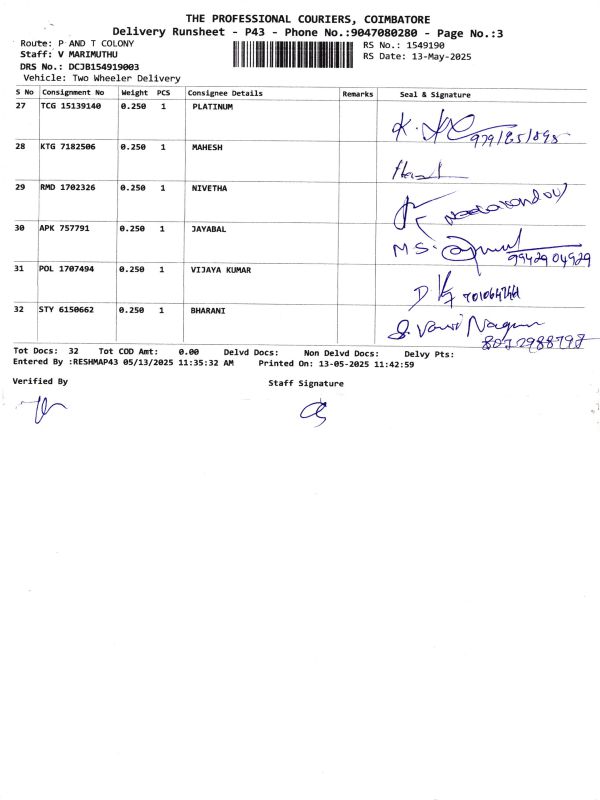 THE PROFESSIONAL COURIERS, COIMBATORE
Delivery Runsheet - P43 - Phone No.:9047080280 - Page No.:3
Route: P AND T COLONY RS No.: 1549190
Staff: V MARIMUTHU RS Date: 13-May-2025
DRS No.: DCJB154919003
Vehicle: Two Wheeler Delivery
S No Consignment No Weight PCS Consignee Details Remarks Seal & Signature
27 TCG 15139140 0.250 1 PLATINUM
28 KTG 7182506 0.250 1 MAHESH
29 RMD 1702326 0.250 1 NIVETHA
30 APK 757791 0.250 1 JAYABAL
M S.
9942904929
31 POL 1707494 0.250 1 VIJAYA KUMAR
32 STY 6150662 0.250 1 BHARANI
Tot Docs: 32 Tot COD Amt: 0.00 Delvd Docs: Non Delvd Docs: Delvy Pts:
Entered By :RESHMAP43 05/13/2025 11:35:32 AM Printed On: 13-05-2025 11:42:59
Verified By Staff Signature